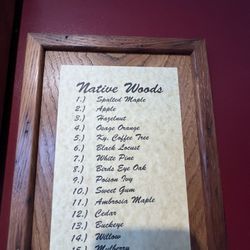 Native Woods
1.) Spalted Maple
2.) Apple
3.) Hazelnut
4.) Osage Orange
5.) Ky. Coffee Tree
6.) Black Locust
7.) White Pine
8.) Birds Eye Oak
9.) Poison Ivy
10.) Sweet Gum
11.) Ambrosia Maple
12.) Cedar
13.) Buckeye
14.) Willow
15.) Mulberry